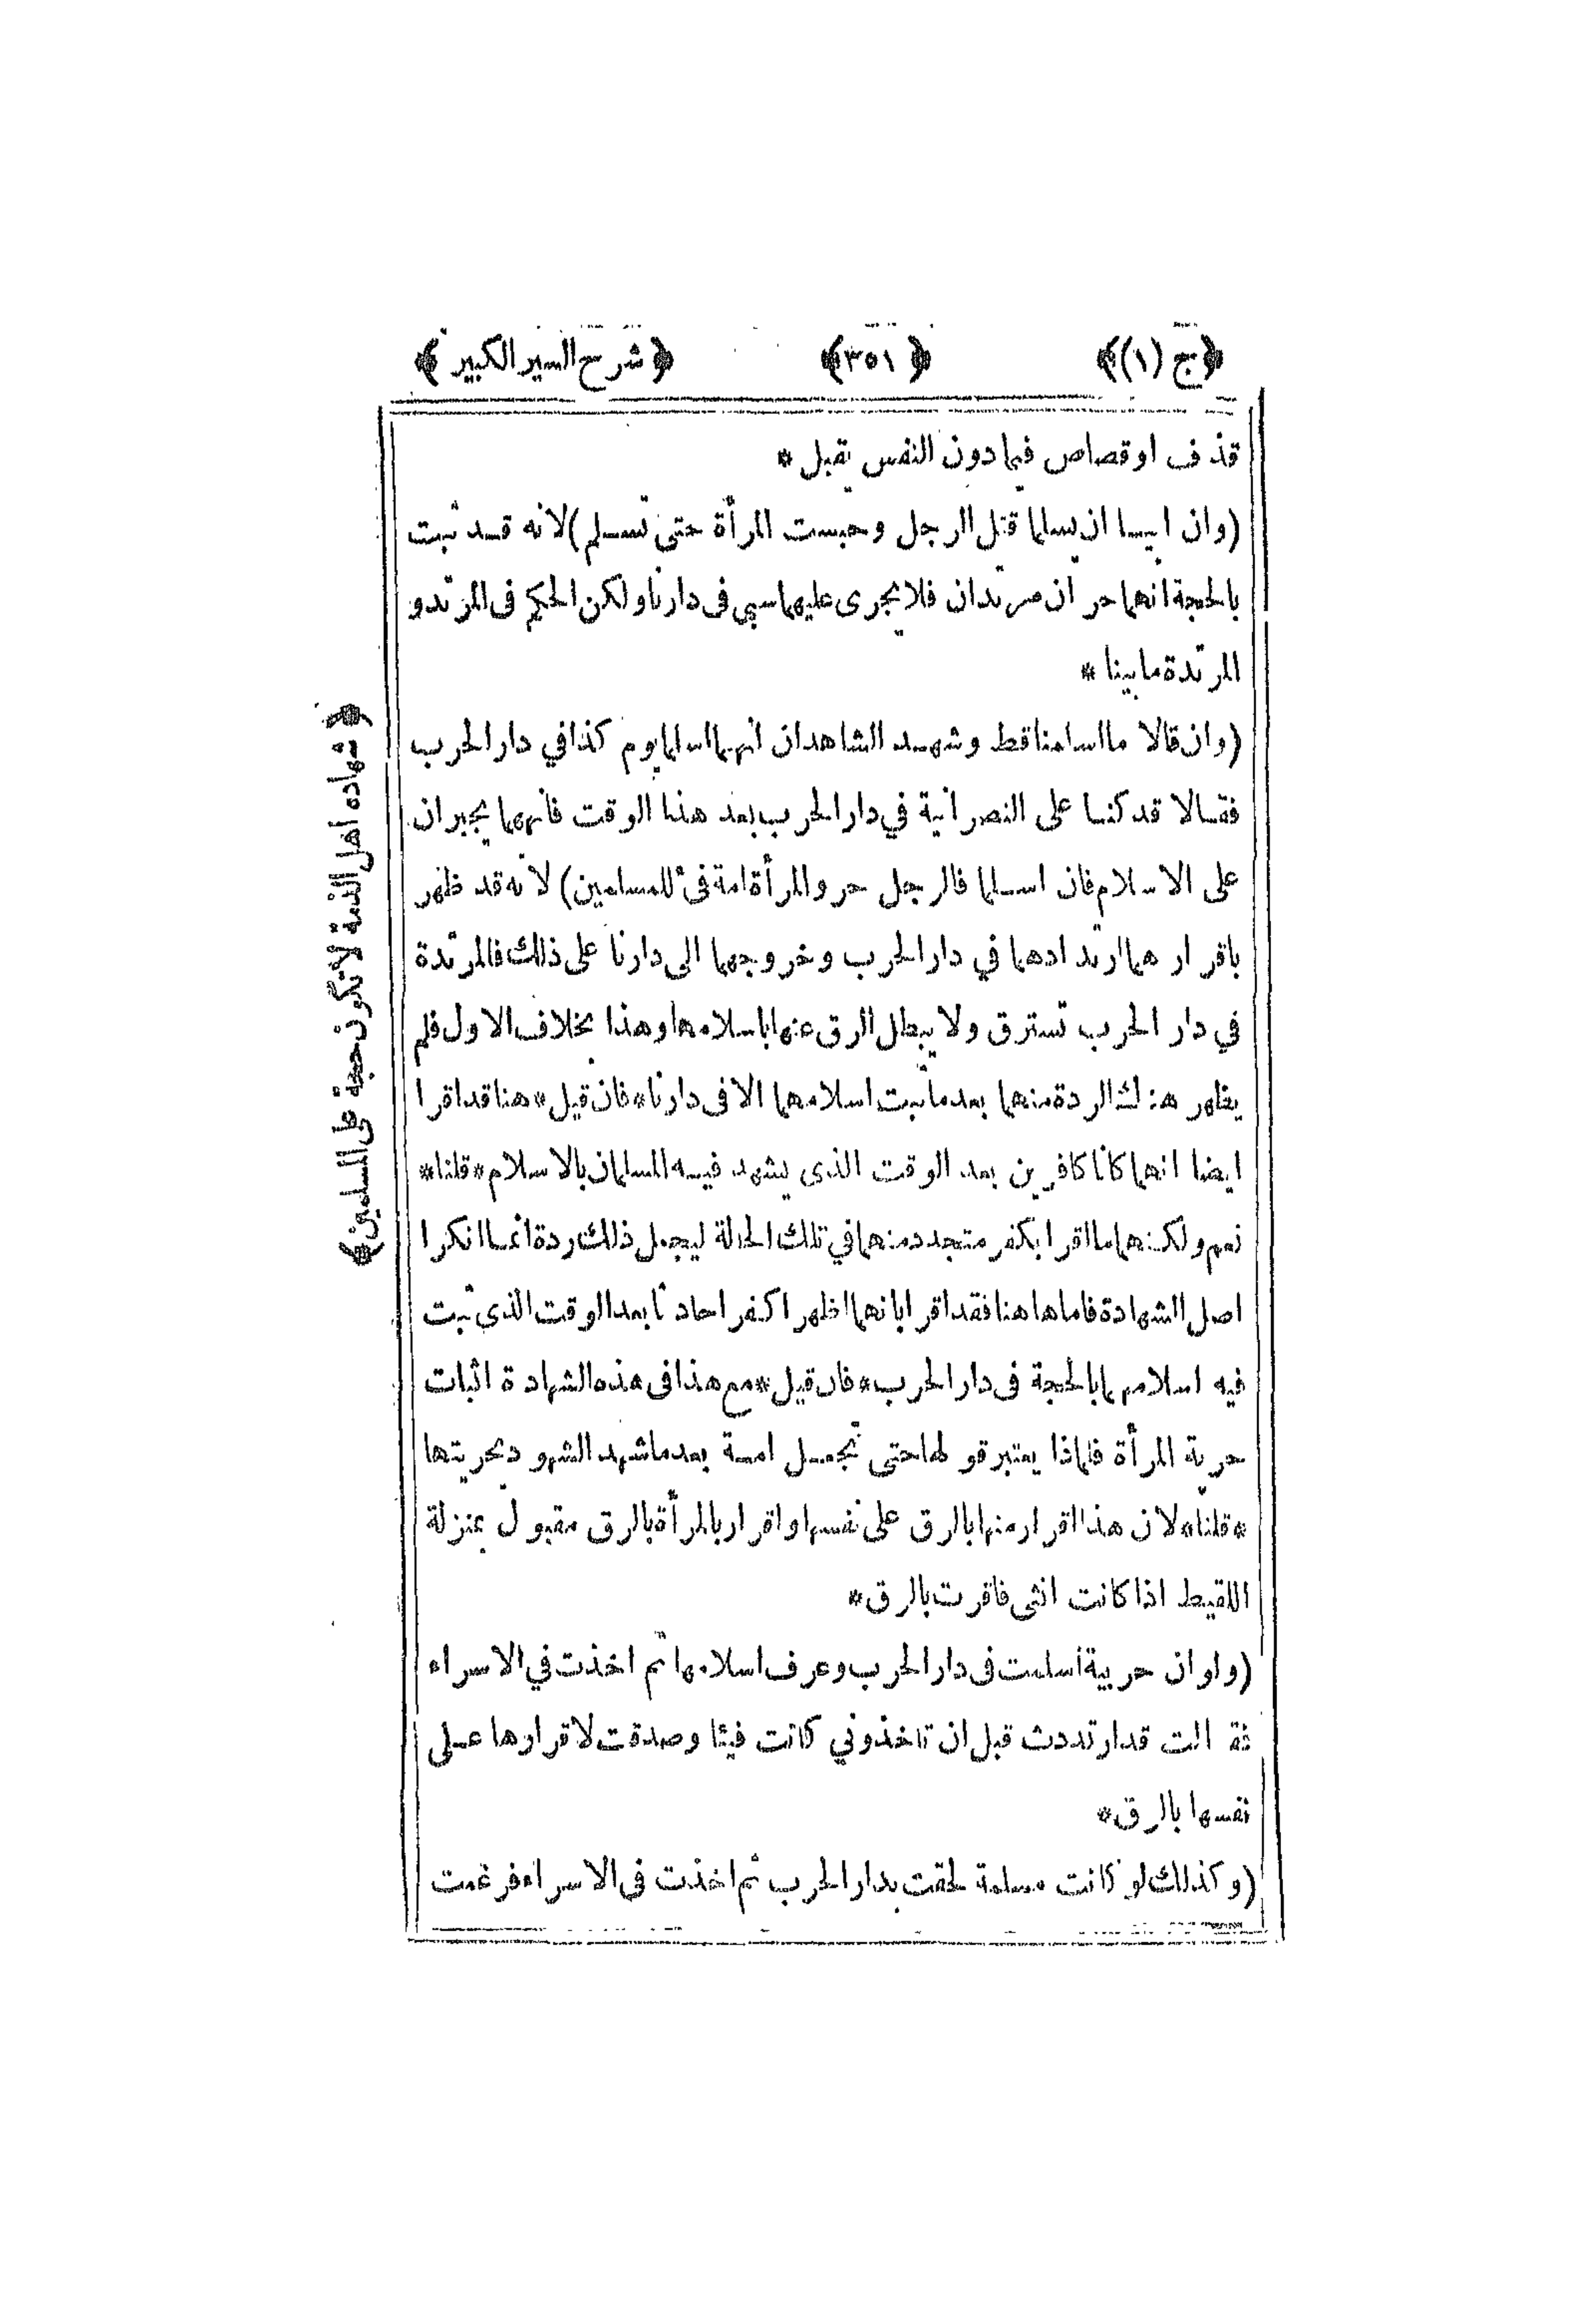 ﴿ج (١)﴾ ﴿٣٥١﴾ ﴿شرح السير الكبير﴾
قذف او قصاص فيما دون النفس يقبل *
(وان ابيا ان يسلما قتل الرجل وحبست المرأة حتى تسلم) لانه قد ثبت
بالحجة انهما حران مرتدان فلا يجرى عليهما سبي فى دارنا ولكن الحكم فى المرتد و
المرتدة ما بينا *
(وان قالا ما اسلمنا قط وشهد الشاهدان انهما اسلما يوم كذا في دار الحرب
فقالا قد كنا على النصرانية في دار الحرب بعد هذا الوقت فانهما يجبران
على الاسلام فان اسلما فالرجل حر والمرأة امة فئ للمسلمين) لانه قد ظهر
باقرارهما ارتدادهما في دار الحرب وخروجهما الى دارنا على ذلك فالمرتدة
في دار الحرب تسترق ولا يبطل الرق عنها باسلامها وهذا بخلاف الاول فلم
يظهر هناك الردة منهما بعد ما ثبت اسلامهما الا فى دارنا * فان قيل * هنا قد اقرا
ايضا انهما كانا كافرين بعد الوقت الذى يشهد فيه المسلمان بالاسلام * قلنا *
نعم ولكنهما ما اقرا بكفر متجدد منهما في تلك الحالة ليجعل ذلك ردة انما انكرا
اصل الشهادة فاما هاهنا فقد اقرا بانهما اظهرا كفرا حادثا بعد الوقت الذى ثبت
فيه اسلامهما بالحجة فى دار الحرب * فان قيل * مع هذا فى هذه الشهادة اثبات
حرية المرأة فلماذا يعتبر قولها حتى تجعل امة بعد ما شهد الشهود بحريتها
* قلنا * لان هذا اقرار منها بالرق على نفسها واقرار بالمرأة بالرق مقبول بمنزلة
اللقيط اذا كانت انثى فاقرت بالرق *
(ولو ان حربية أسلمت فى دار الحرب وعرف اسلامها ثم اخذت في الاسراء
فقالت قد ارتددت قبل ان تاخذوني كانت فيئا وصدقت لاقرارها على
نفسها بالرق *
(وكذلك لو كانت مسلمة لحقت بدار الحرب ثم اخذت فى الاسراء فرعمت
﴿شهادة أهل الذمة لا تكون حجة على المسلمين﴾